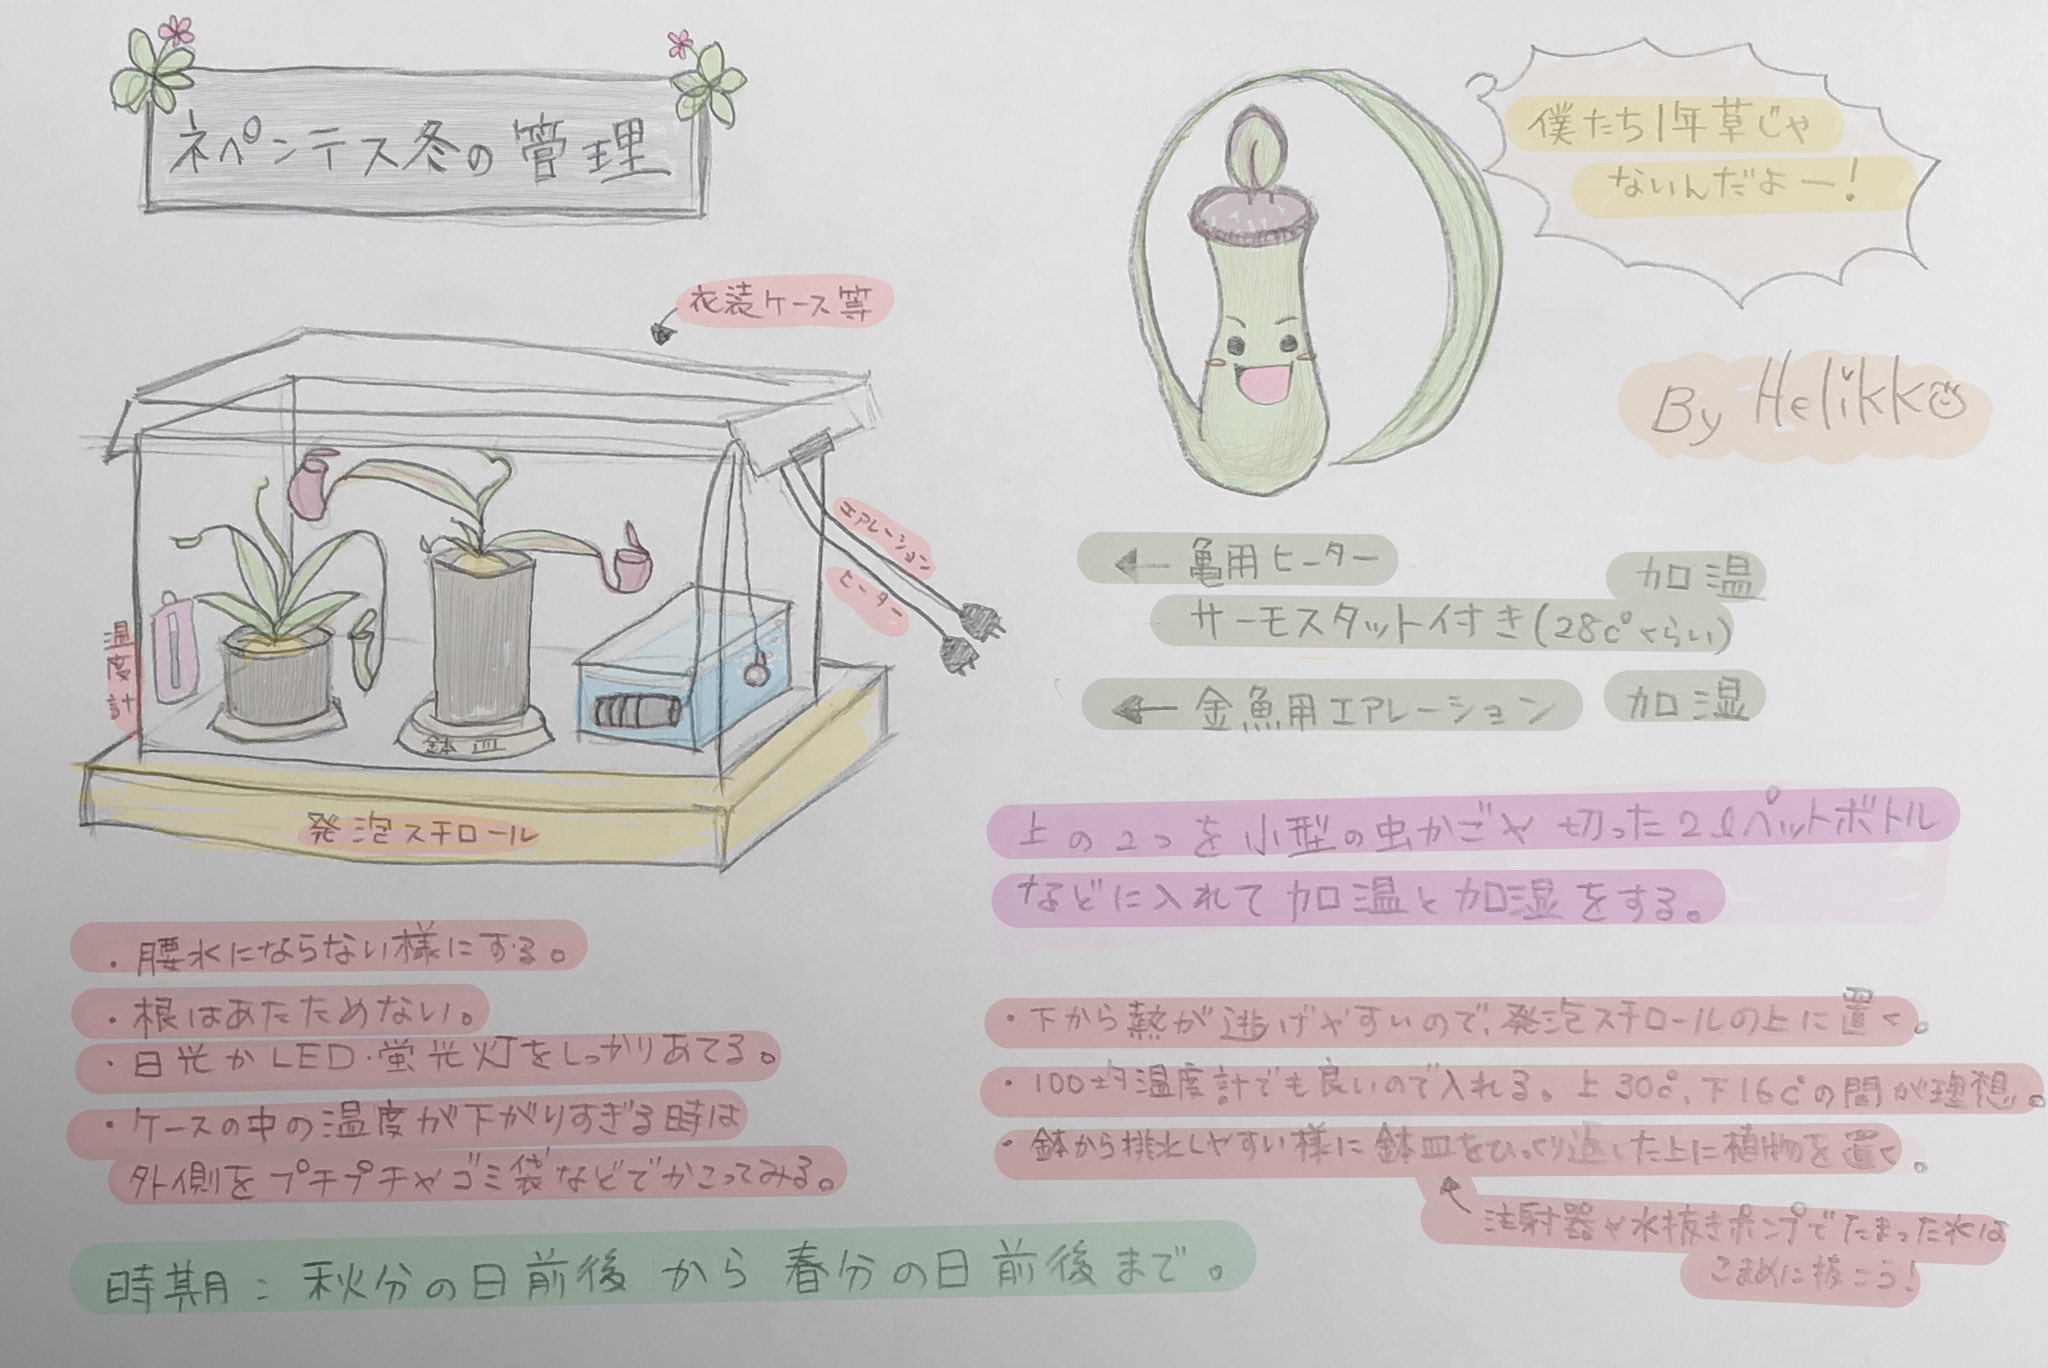 ネペンテス冬の管理
僕たち1年草じゃ
ないんだよー!
By Helikko
衣装ケース等
エアレーション
ヒーター
温度計
鉢皿
発泡スチロール
← 亀用ヒーター 加温
サーモスタット付き(28c°くらい)
← 金魚用エアレーション 加湿
上の2つを小型の虫かごや切った2ℓペットボトル
などに入れて加温と加湿をする。
・腰水にならない様にする。
・根はあたためない。
・日光かLED・蛍光灯をしっかりあてる。
・ケースの中の温度が下がりすぎる時は
外側をプチプチやゴミ袋などでかこってみる。
・下から熱が逃げやすいので、発泡スチロールの上に置く。
・100均温度計でも良いので入れる。上30c°、下16c°の間が理想。
・鉢から排水しやすい様に鉢皿をひっくり返した上に植物を置く。
注射器や水抜きポンプでたまった水は
こまめに抜こう!
時期:秋分の日前後から春分の日前後まで。